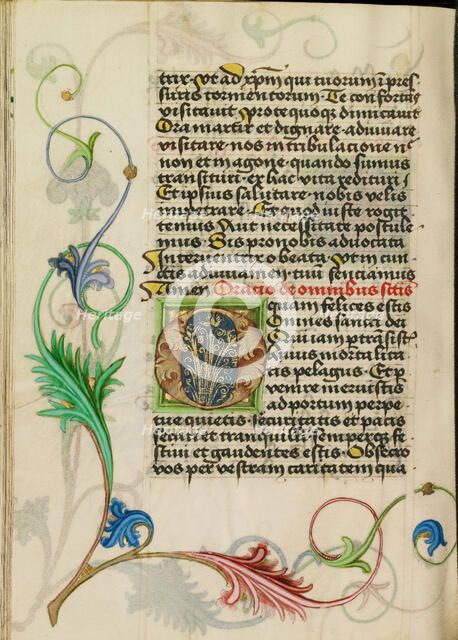 trix. Vt ad xpm qui tuorum i pres-
suris tormentorum. Te confortas
visitavit. Pro te quoq; dimicavit
Ora martir et dignare. adiuuare
visitare. nos in tribulacione nec
non et in agone. quando sumus
transituri. ex hac vita redituri.
Et ipsius salutare. nobis velis
impetrare. Ex quo iuste rogi-
temus. Aut necessitate postule-
mus. Sis pro nobis advocata
Interventrix o beata. Vt in cun-
ctis adiuuamen. tui sentiamus
Amen Oratio de omnibus sctis
O quam felices estis
omnes sancti dei
Quia iam pertransistis
huius mortalita-
tis pelagus. Et per-
venire meruistis
ad portum perpe-
tue quietis. securitatis et pacis
securi et tranquilli. semperq; fe-
stivi et gaudentes estis. Obsecro
vos per vestram caritatem qua
Heritage
Heritage
Heritage